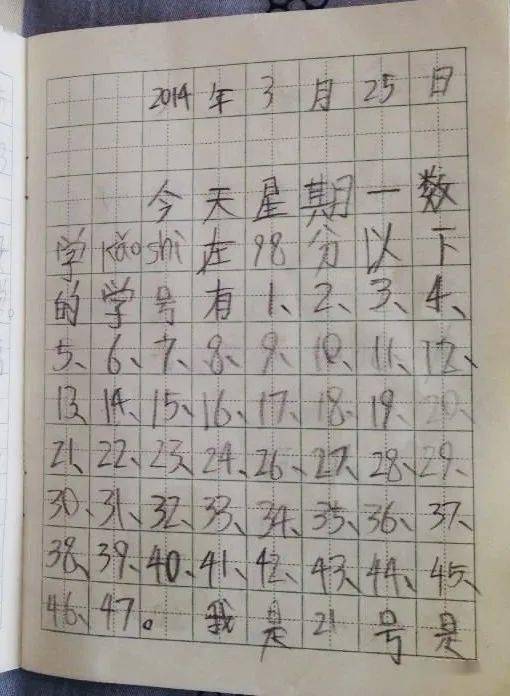 2014年3月25日
今天星期一数
学kǎoshì在98分以下
的学号有1、2、3、4、
5、6、7、8、9、10、11、12、
13、14、15、16、17、18、19、20、
21、22、23、24、26、27、28、29、
30、31、32、33、34、35、36、37、
38、39、40、41、42、43、44、45、
46、47。我是21号是